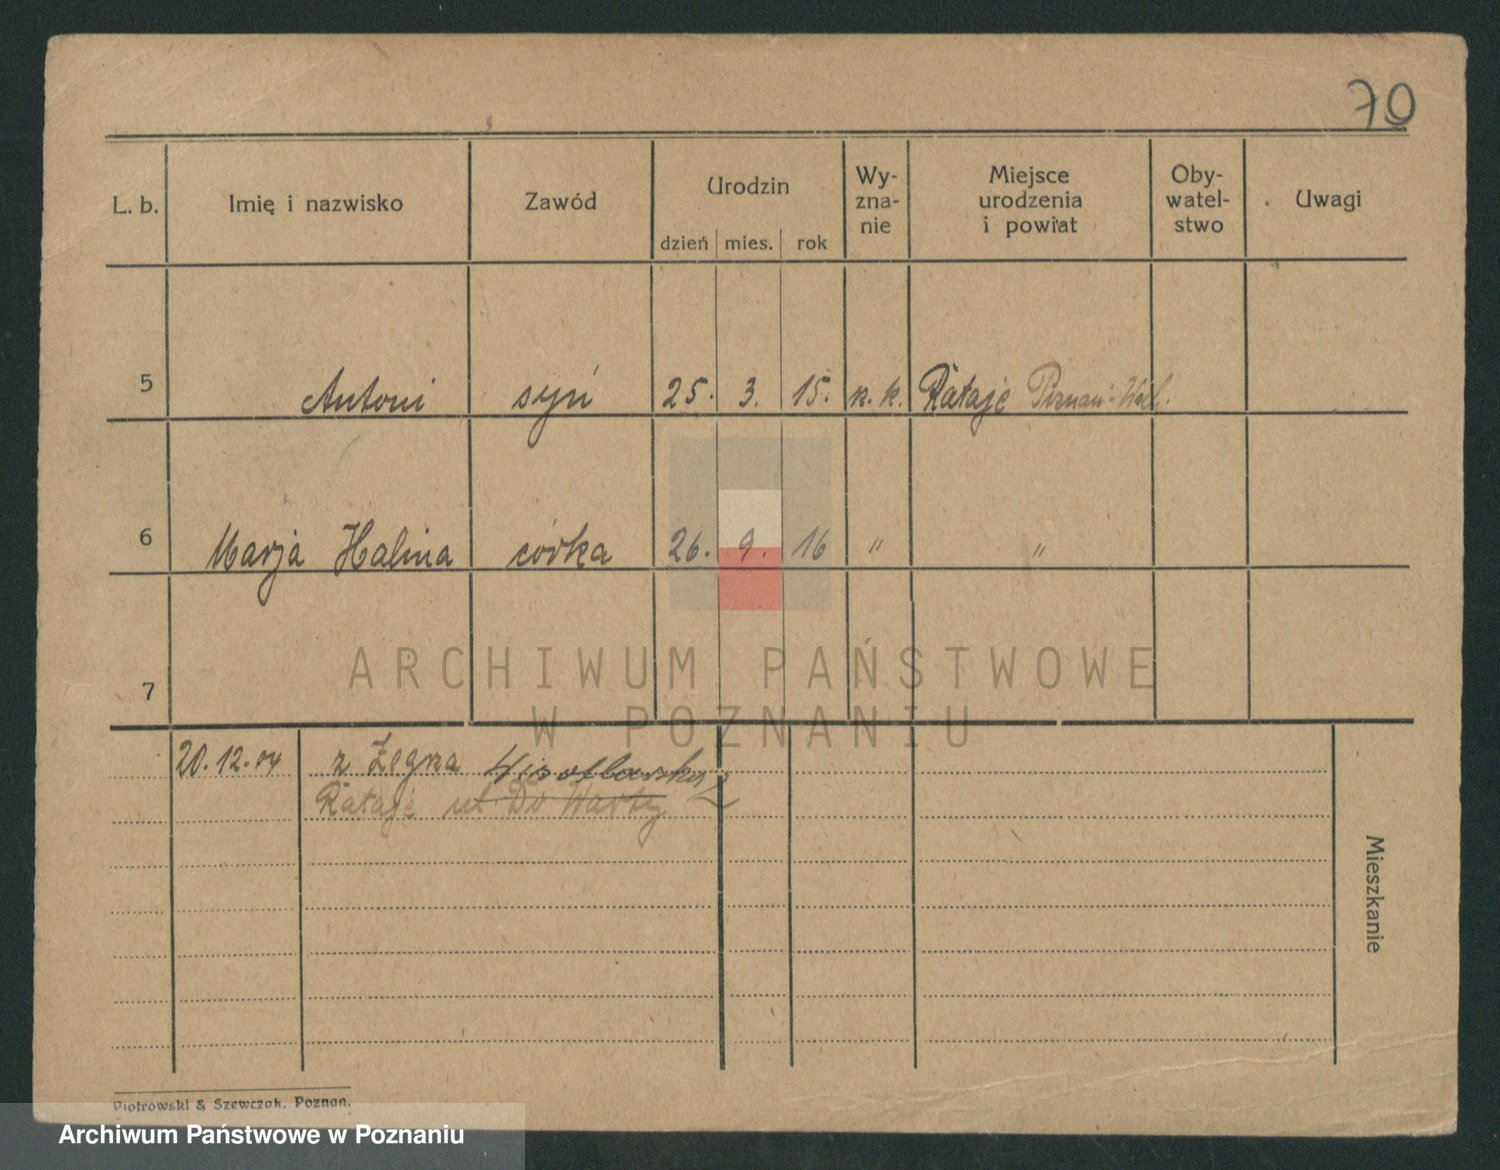 70
L. b. Imię i nazwisko Zawód Urodzin Wy- Miejsce Oby- Uwagi
zna- urodzenia watel-
nie i powiat stwo
dzień mies. rok
5 Antoni syn 25. 3. 15. r.k. Rataje Poznań-
6 Marja Halina córka 26. 9. 16 " "
7
ARCHIWUM PAŃSTWOWE
W POZNANIU
20.12.04 z Żegrza
Rataje ul Do Warty
Mieszkanie
Piotrowski & Szewczak, Poznan.
Archiwum Państwowe w Poznaniu